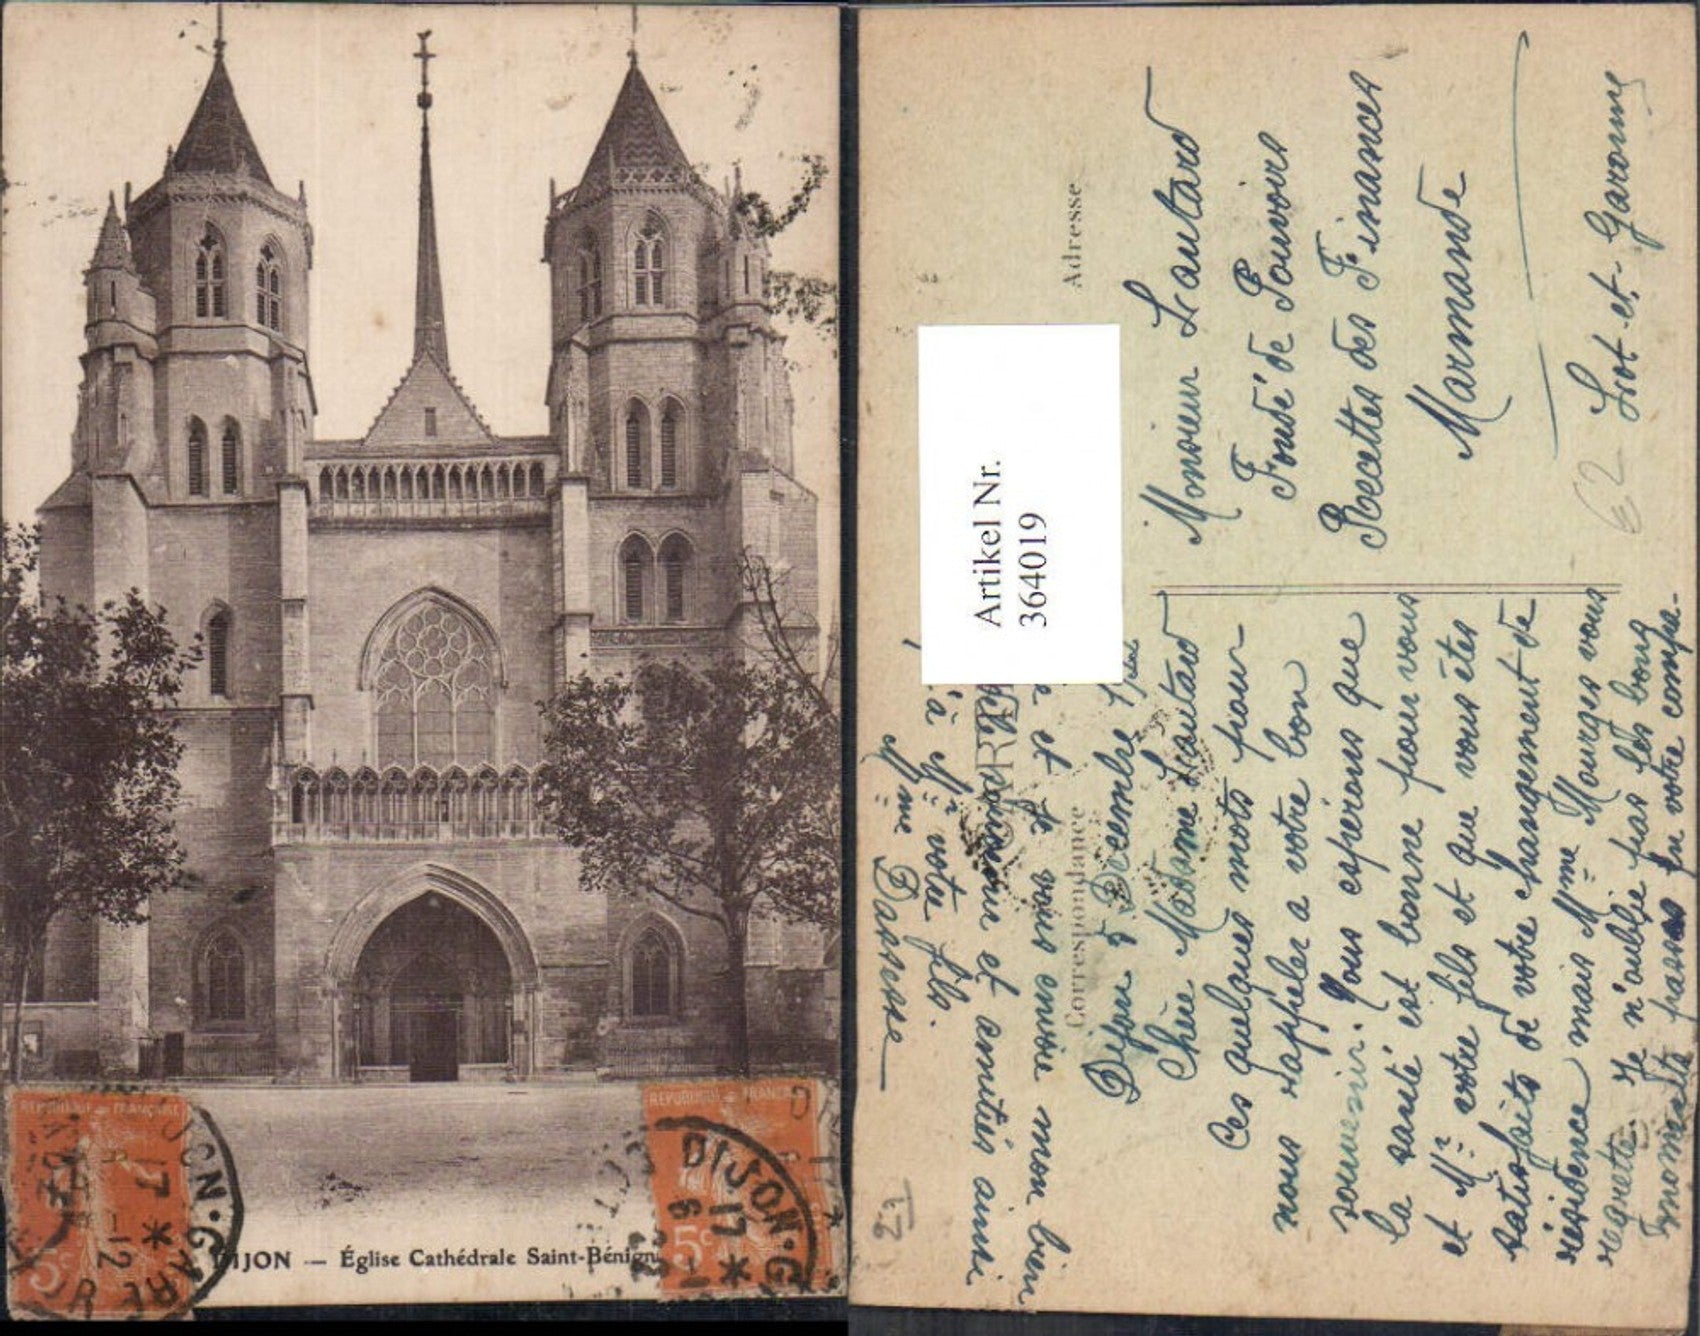 DIJON — Église Cathédrale Saint-Bénign
REPUBLIQUE FRANÇAISE
5c
DIJON·GARE
17 * -12
REPUBLIQUE FRANC
5c
DIJON·G
6
17 *
Artikel Nr.
364019
Adresse
Monsieur Lautard
Fondé de Pouvoirs
Recettes des Finances
Marmande
Lot-et-Garonne
€2
Correspondance
Dijon le Décembre
Chère Madame Lautard
Ces quelques mots pour
nous rappeler a votre bon
souvenir. Nous espérons que
la santé est bonne pour vous
et Mr votre fils et que vous êtes
satisfaits de votre changement de
résidence mais Mme Mourges vous
regrette. Je n'oublie pas les bons
moments passés en votre compa-
e et je vous envoie mon bien
souvenir et amitiés ainsi
'à Mr votre fils.
Mme Darsesse